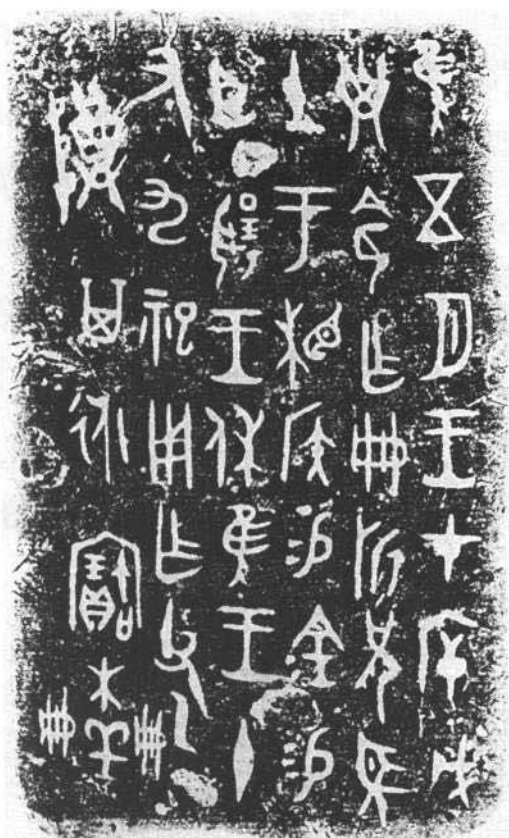 隹五月王才斥戊
子令乍册折兄望
土于相侯易金易
臣揚王休隹王十
又九祀用乍父乙
尊其永寶木羊册册